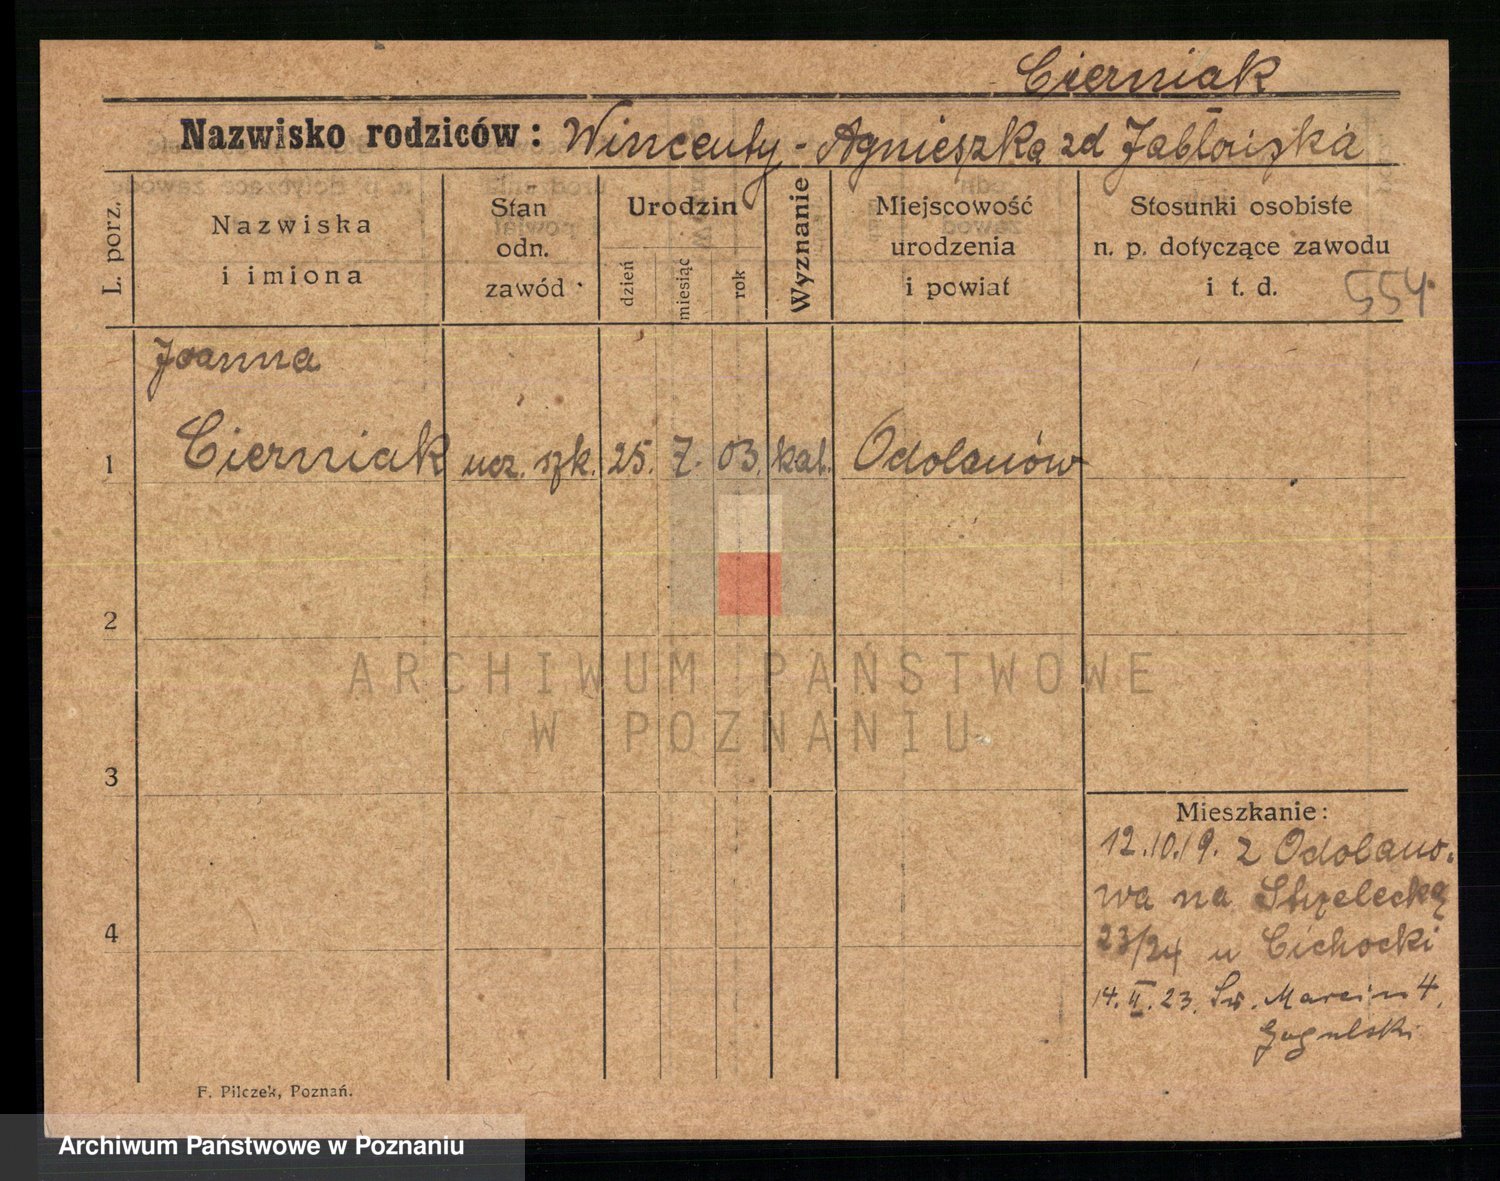 Cierniak
Nazwisko rodziców: Wincenty - Agnieszka zd Jabłońska
L. porz.
Nazwiska
i imiona
Stan
odn.
zawód
Urodzin
dzień
miesiąc
rok
Wyznanie
Miejscowość
urodzenia
i powiat
Stosunki osobiste
n. p. dotyczące zawodu
i t. d.
554
Joanna
1 Cierniak ucz. szk. 25. 7. 03. kat. Odolanów
2
ARCHIWUM PAŃSTWOWE
W POZNANIU
3
Mieszkanie:
12.10.19. z Odolano-
wa na Strzelecką
4
23/24 u Cichocki
14. II. 23. Św. Marcin 4.
F. Pilczek, Poznań.
Archiwum Państwowe w Poznaniu